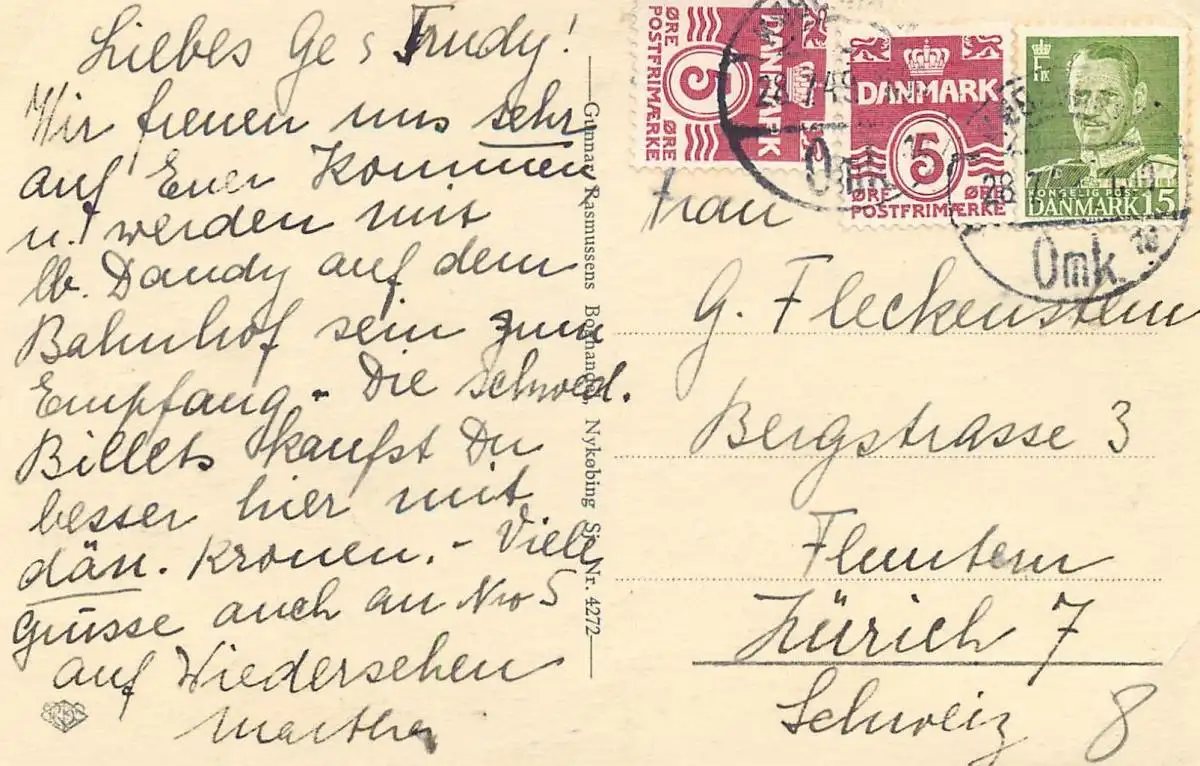 Liebes Ge s Trudy!
Wir freuen uns sehr
auf Euer Kommen
u. werden mit
lb. Dandy auf dem
Bahnhof sein zum
Empfang – Die schwed.
Billets kaufst Du
besser hier mit
dän. Kronen. – Viele
Grüsse auch an Nro 5
auf Wiedersehen
Martha
Gunnar Rasmussens Boghandel, Nykøbing Sj. Nr. 4272
5
DANMARK
ØRE
ØRE
POSTFRIMÆRKE
DANMARK
5
ØRE
ØRE
POSTFRIMÆRKE
FIR
KONGELIG POST
DANMARK 15
28.7.49
Omk.
28.7
Omk. 10
Frau
G. Fleckenstein
Bergstrasse 3
Fluntern
Zürich 7
Schweiz 8